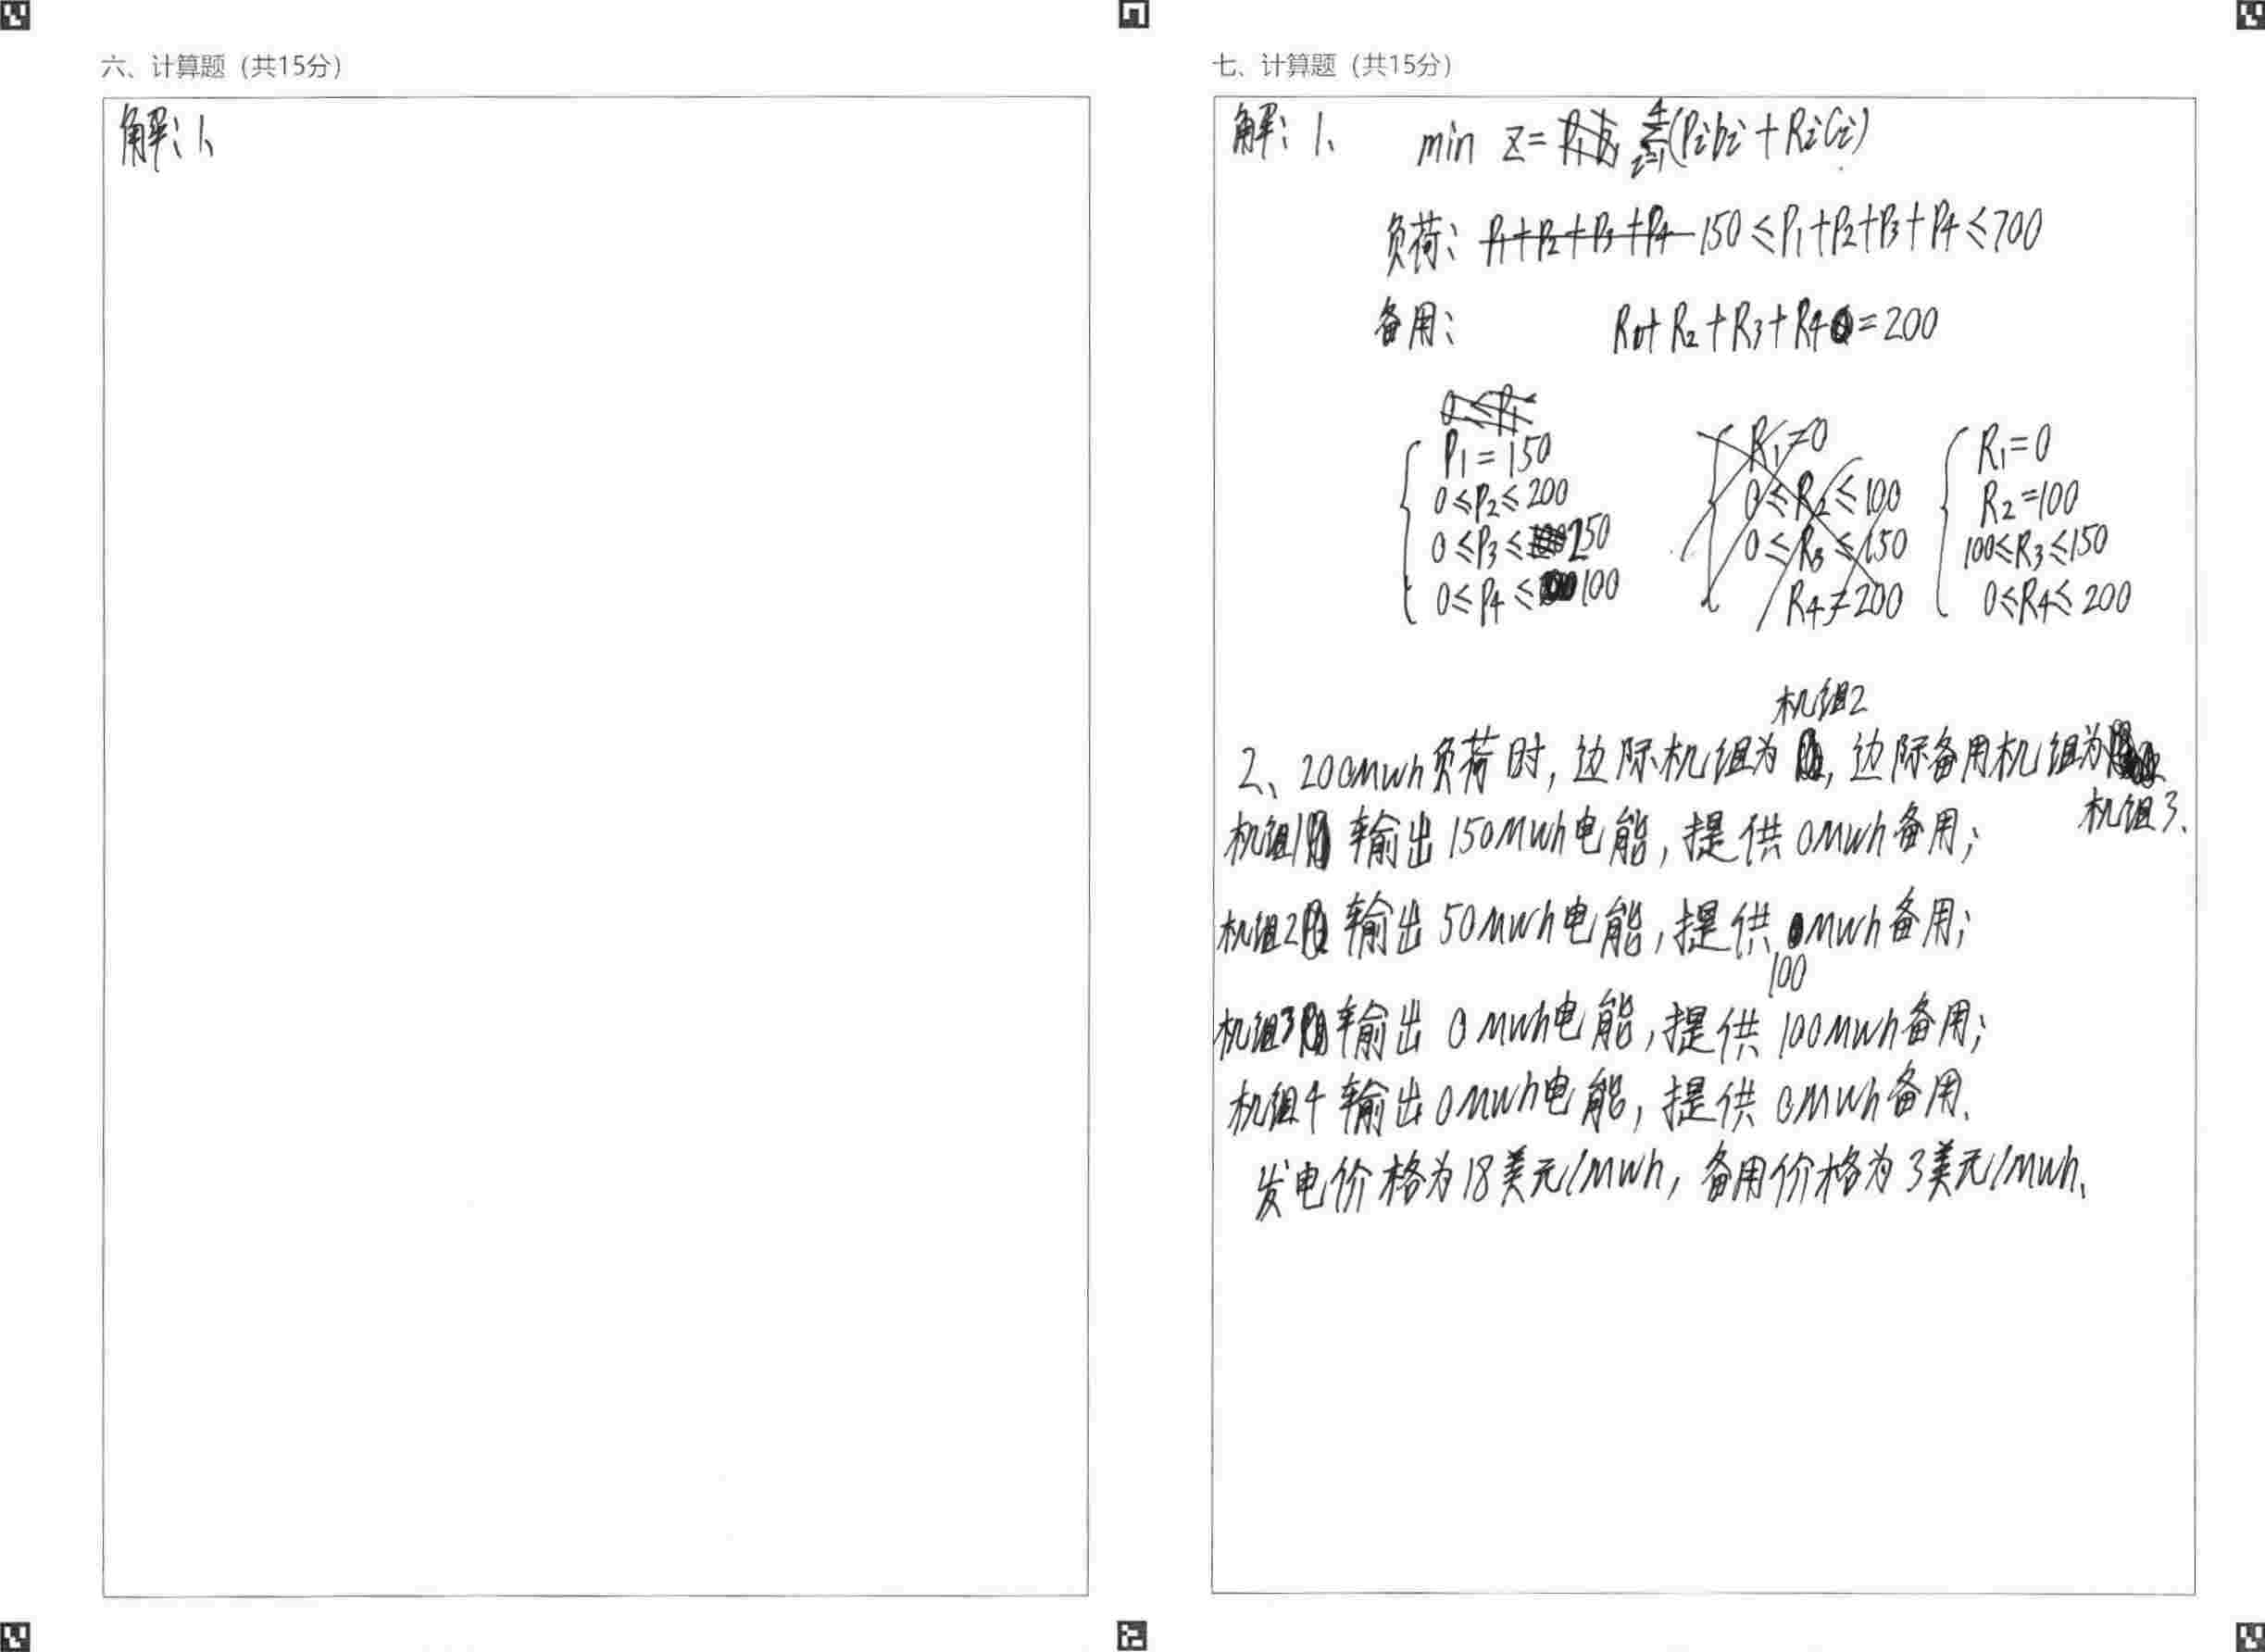 六、计算题（共15分）
解：1、
七、计算题（共15分）
解：1、 min z = ∑(Pibi + RiCi)
4
i=1
负荷： P1+P2+P3+P4 150≤P1+P2+P3+P4≤700
备用： R1+R2+R3+R4=200
0≤P1
P1=150
0≤P2≤200
0≤P3≤250
0≤P4≤100
R1=0
0≤R2≤100
0≤R3≤150
R4=200
R1=0
R2=100
100≤R3≤150
0≤R4≤200
机组2
2、200Mwh负荷时，边际机组为，边际备用机组为
机组3、
机组1输出150Mwh电能，提供0Mwh备用；
机组2输出50Mwh电能，提供Mwh备用；
100
机组3输出0Mwh电能，提供100Mwh备用；
机组4输出0Mwh电能，提供0Mwh备用、
发电价格为18美元/Mwh，备用价格为3美元/Mwh、